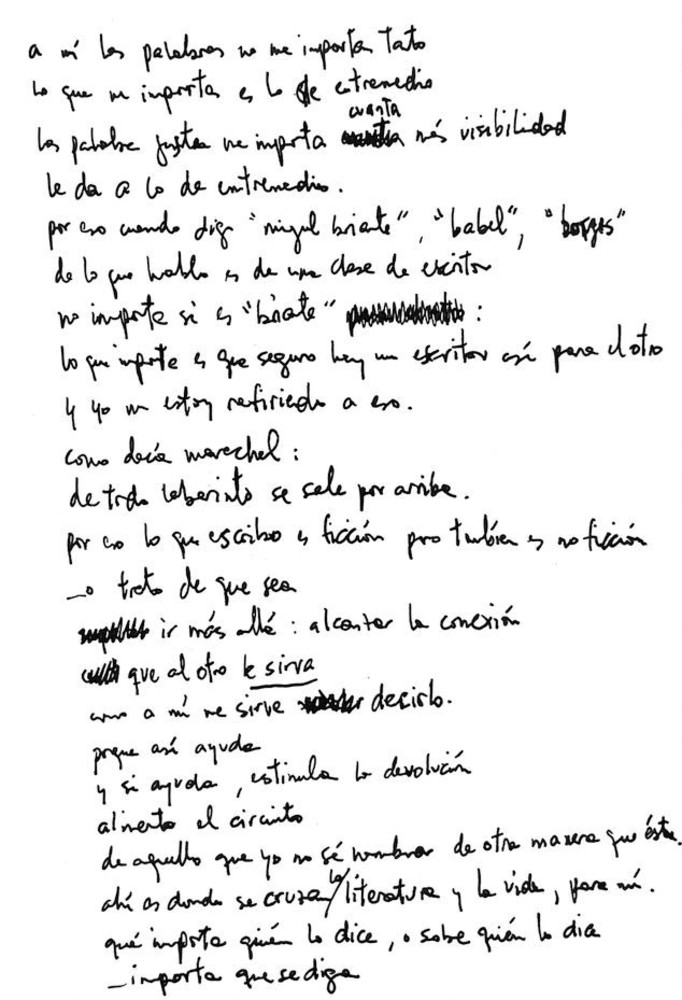 a mí las palabras no me importan tato
lo que m importa es lo de entremedio
cuanta
las palabra justa me importa más visibilidad
le da a lo de entremedio.
por eso cuando digo "miguel briante", "babel", "borges"
de lo que hablo es de una clase de escritor
no importa si es "briante" :
lo que importa es que seguro hay un escritor así para el otro
y yo m estoy refiriendo a eso.
como decía marechal :
de todo laberinto se sale por arriba.
por eso lo que escribo es ficción pero también es no ficción
_o trato de que sea
ir más allá : alcanzar la conexión
que al otro le sirva
como a mí me sirve decirlo.
porque así ayuda
y si ayuda, estimula la devolución
alimenta el circuito
de aquello que yo no sé nombrar de otra manera que ésta.
ahí es donde se cruzan la literatura y la vida, para mí.
qué importa quién lo dice, o sobre quién lo dice
_importa que se diga